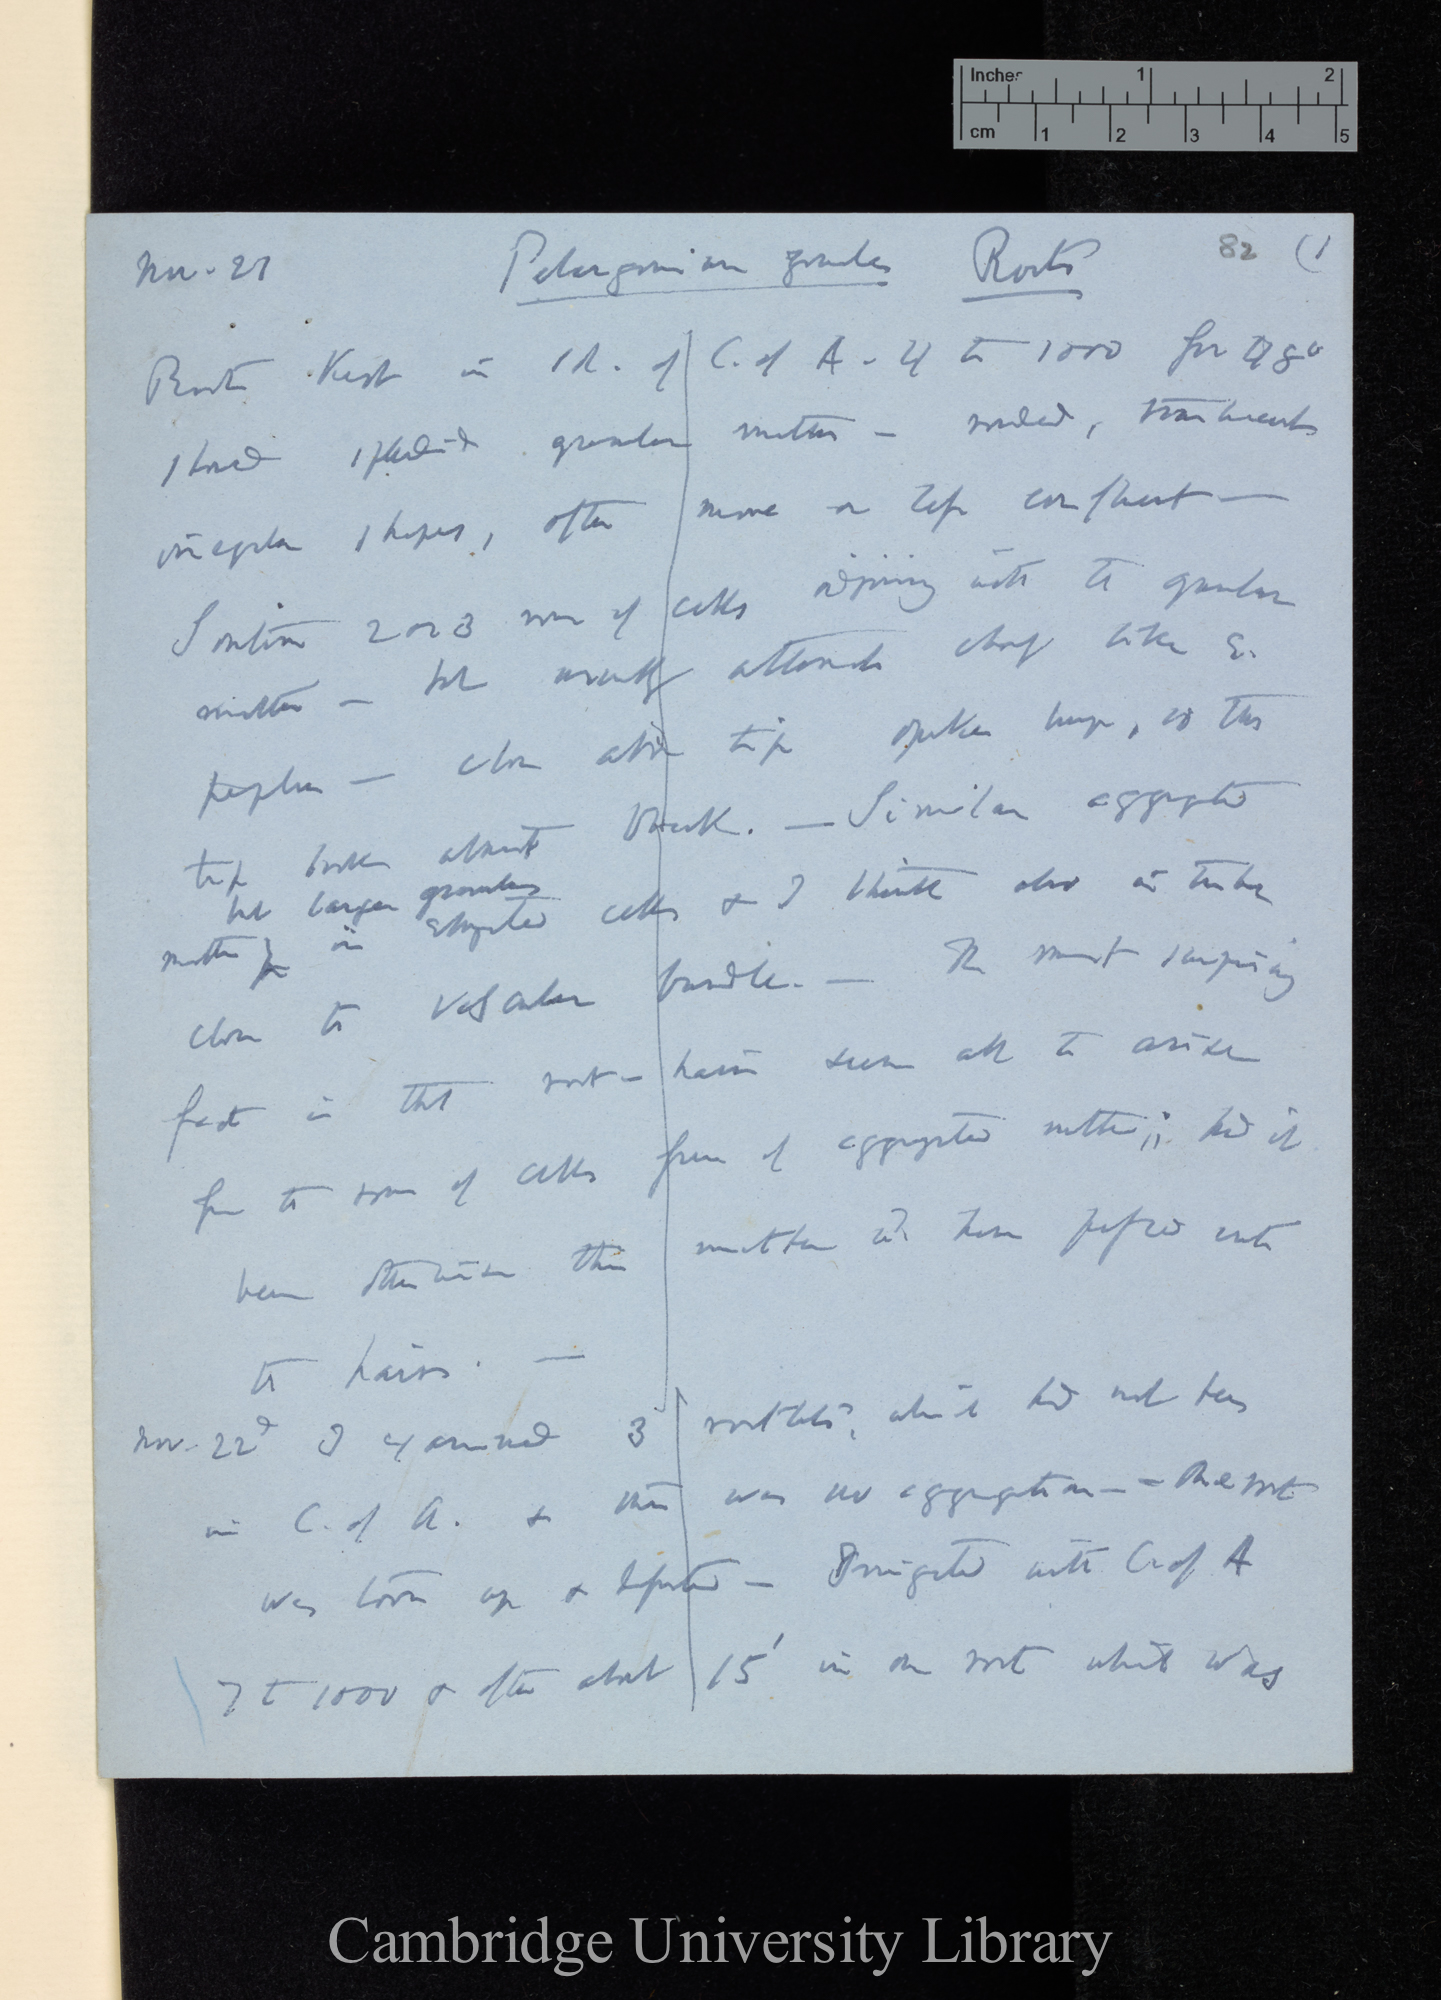 Inches 1 2
cm 1 2 3 4 5
Nov. 21 Pelargonium zonales Roots 82 (1
Roots Kept in sol. of C. of A. 4 to 1000 for
showed splendid granular matter — rounded, translucent
irregular shapes, often more or less confluent —
Sometimes 2 or 3 rows of cells adjoining with the granular
matter — but usually alternate rows like E.
peplus — close above tip
tip looks almost black. — Similar aggregated
but larger granules
matter in elongated cells & I think also in tubes
close to vascular bundle. — The most surprising
fact is that root-hairs seem all to arise
from the rows of cells free of aggregated matter; had it
been otherwise this matter wd have passed into
the hairs. —
Nov. 22d I examined 3 rootlets, which had not been
in C. of A. & there was no aggregation — The root
was torn up & — Irrigated with C. of A
7 to 1000 & after about 15' in one root which was
Cambridge University Library